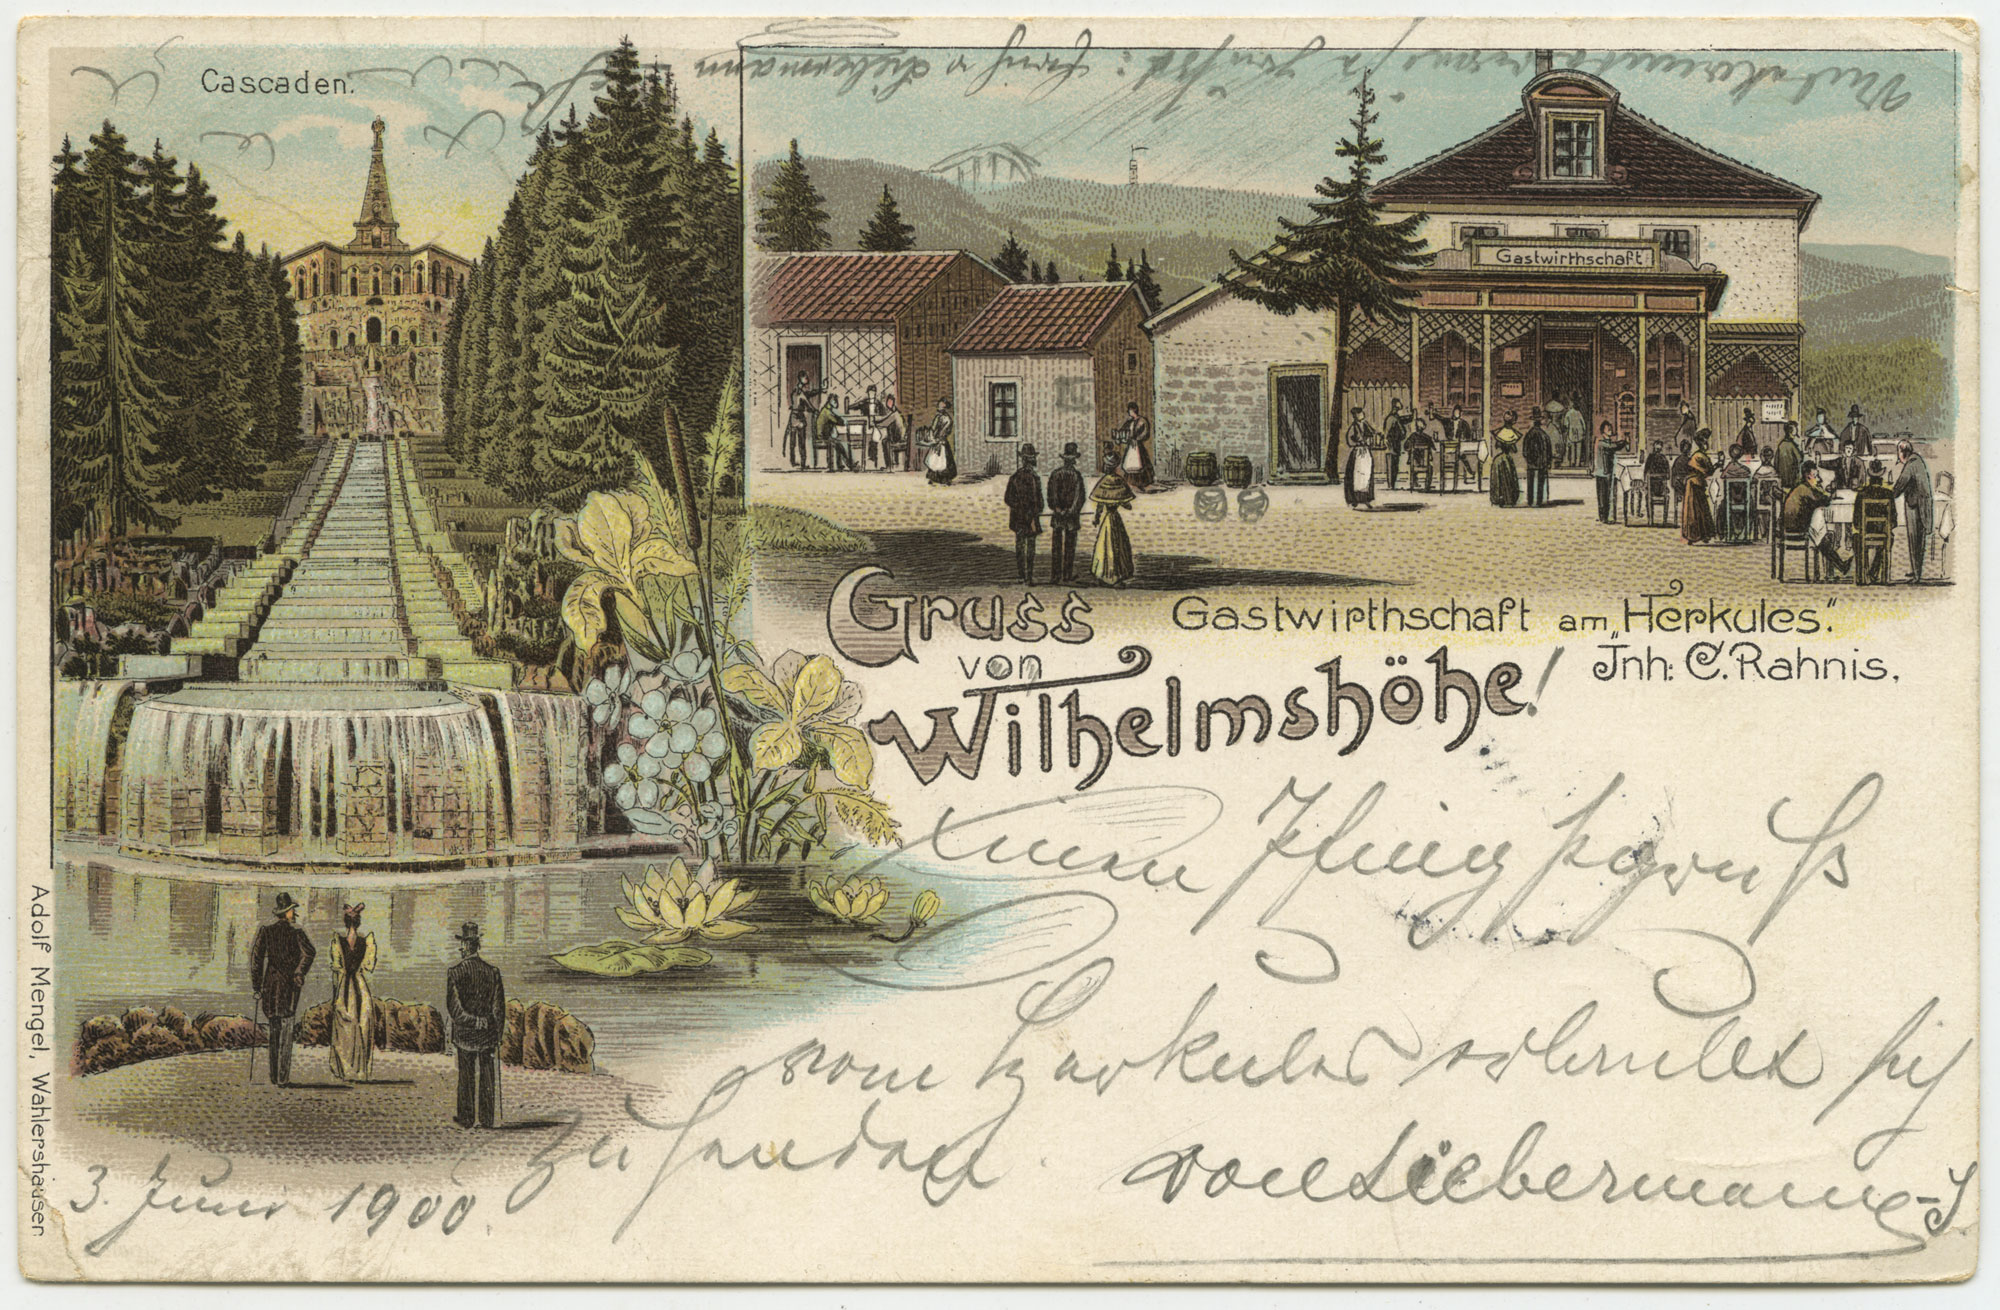 Cascaden.
Gastwirthschaft
Gastwirthschaft am „Herkules."
Jnh: C. Rahnis.
Gruss
von
Wilhelmshöhe!
Einen Pfingstgruß
vom Herkules erlaubt sich
zu senden
von Liebermann
3. Juni 1900.
Adolf Mengel, Wahlershausen
v Liebermann